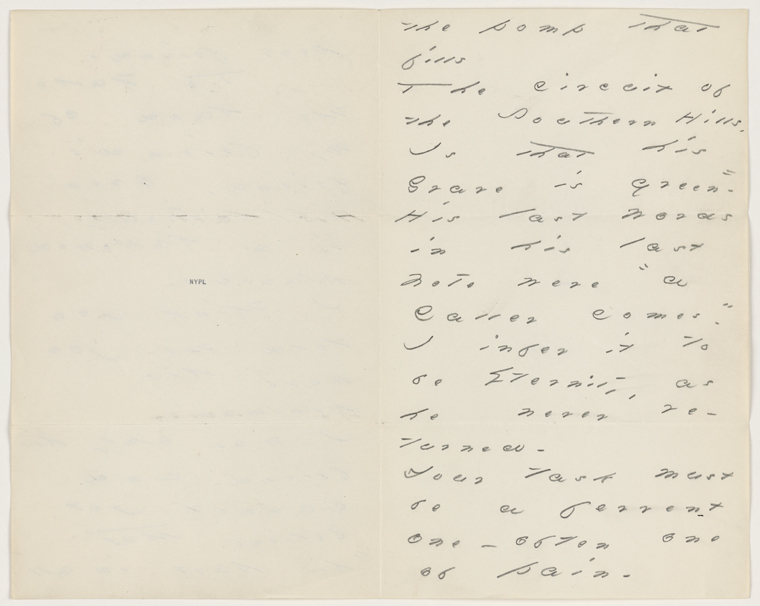 NYPL
the pomp that
fills
The circuit of
the Southern Hills,
Is that his
Grave is green"-
His last words
in his last
Note were "a
Caller comes."
I infer it to
be Eternity, as
he never re-
turned -
Your task must
be a fervent
one - often one
of pain -